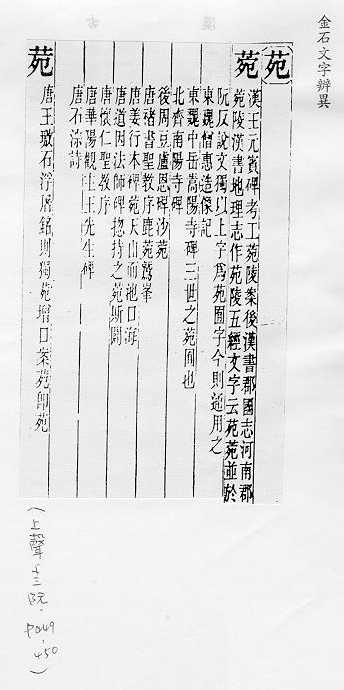 金石文字辨異
苑
苑 漢王元賓碑考工苑陵案後漢書郡國志河南郡
苑陵漢書地理志作菀陵五經文字云苑菀並於
阮反說文獨以上字爲苑囿字今則通用之
東魏僧惠造像記
東魏中岳嵩陽寺碑三世之苑囿也
北齊南陽寺碑
後周豆盧恩碑沙苑
唐褚書聖教序鹿苑鷲峯
唐姜行本碑苑天山而池口海
唐道因法師碑揔持之苑斯闢
唐懷仁聖教序
唐華陽觀主王先生碑
唐石淙詩
菀 唐王璥石浮屠銘則獨菀增口案菀即苑
(上聲十三阮·P449-450)